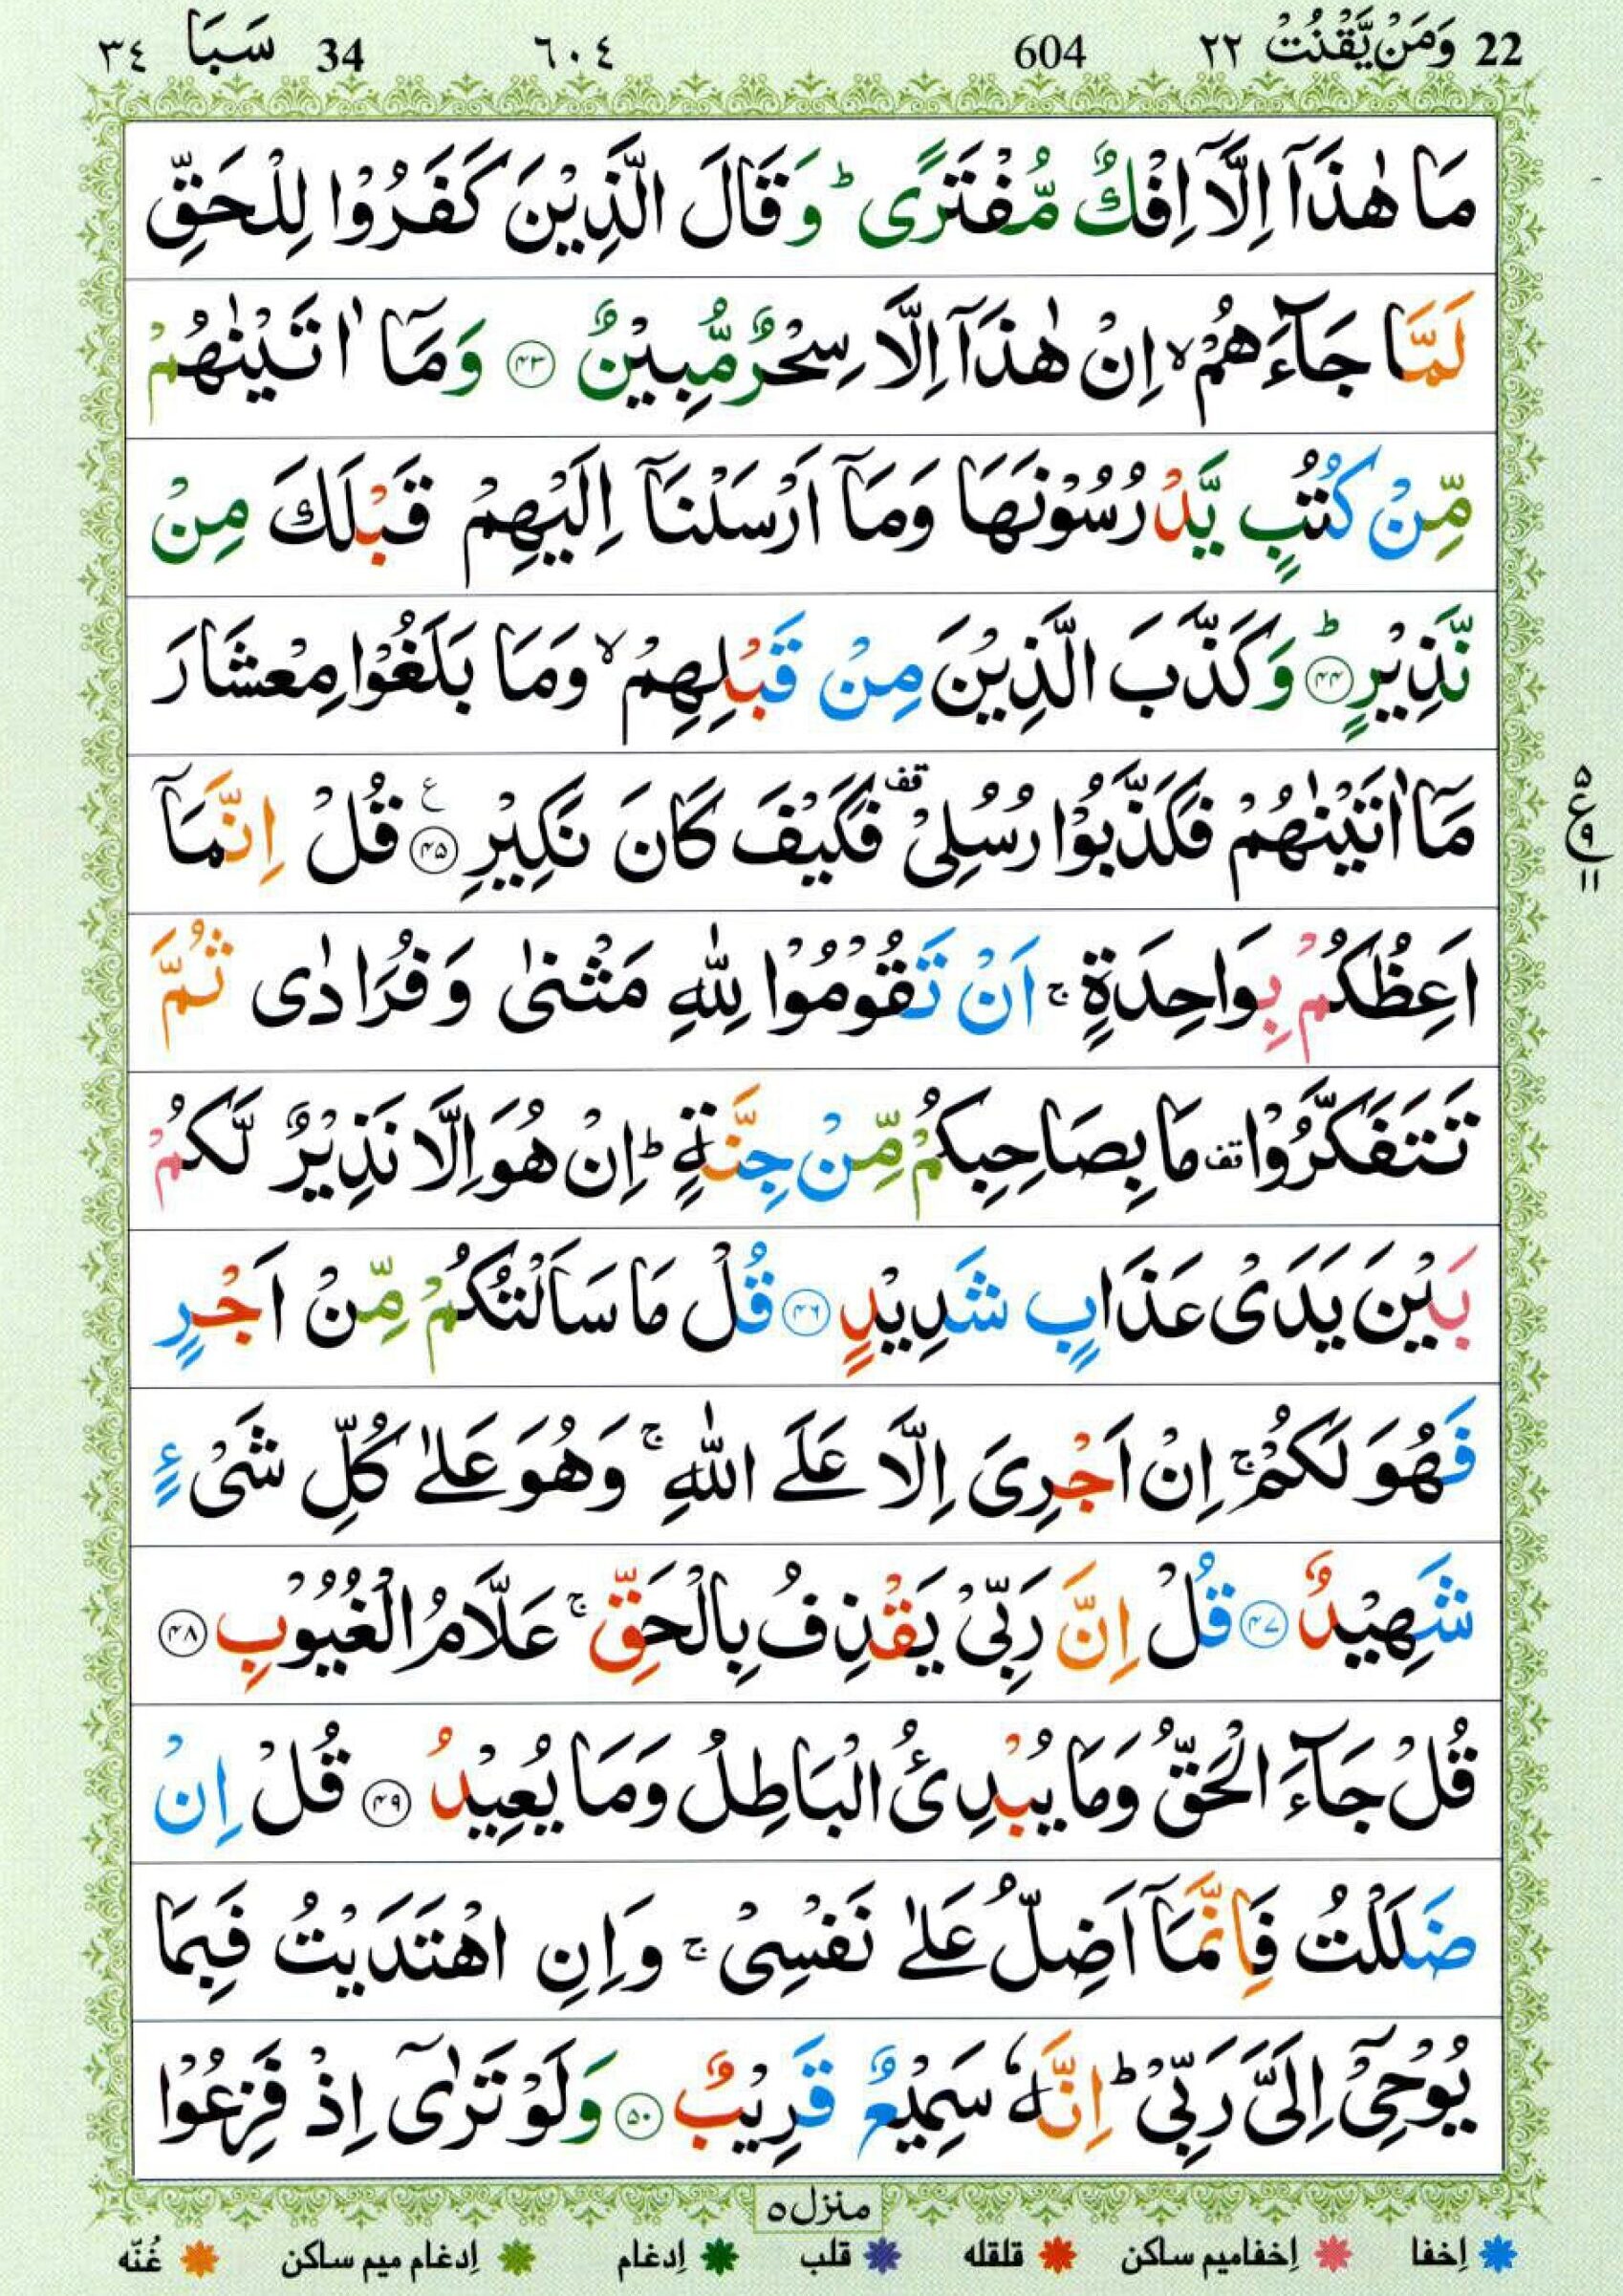 22 وَمَنْ یَّقْنُتْ ٢٢ 604 ٦٠٤ 34 سَبَا ٣٤
مَا هٰذَاۤ اِلَّاۤ اِفْكٌ مُّفْتَرًی ؕ وَقَالَ الَّذِیْنَ كَفَرُوْا لِلْحَقِّ
لَمَّا جَآءَهُمْ ۙ اِنْ هٰذَاۤ اِلَّا سِحْرٌ مُّبِیْنٌ ۴۳ وَمَاۤ اٰتَیْنٰهُمْ
مِّنْ كُتُبٍ یَّدْرُسُوْنَهَا وَمَاۤ اَرْسَلْنَاۤ اِلَیْهِمْ قَبْلَكَ مِنْ
نَّذِیْرٍ ؕ ۴۴ وَكَذَّبَ الَّذِیْنَ مِنْ قَبْلِهِمْ ۙ وَمَا بَلَغُوْا مِعْشَارَ
مَاۤ اٰتَیْنٰهُمْ فَكَذَّبُوْا رُسُلِیْ قف فَكَیْفَ كَانَ نَكِیْرِ ۴۵ ع قُلْ اِنَّمَاۤ
۵ ع ۹ ۱۱
اَعِظُكُمْ بِوَاحِدَةٍ ۚ اَنْ تَقُوْمُوْا لِلّٰهِ مَثْنٰی وَفُرَادٰی ثُمَّ
تَتَفَكَّرُوْا قف مَا بِصَاحِبِكُمْ مِّنْ جِنَّةٍ ؕ اِنْ هُوَ اِلَّا نَذِیْرٌ لَّكُمْ
بَیْنَ یَدَیْ عَذَابٍ شَدِیْدٍ ۴۶ قُلْ مَا سَاَلْتُكُمْ مِّنْ اَجْرٍ
فَهُوَ لَكُمْ ۚ اِنْ اَجْرِیَ اِلَّا عَلَی اللّٰهِ ۚ وَهُوَ عَلٰی كُلِّ شَیْءٍ
شَهِیْدٌ ۴۷ قُلْ اِنَّ رَبِّیْ یَقْذِفُ بِالْحَقِّ ۚ عَلَّامُ الْغُیُوْبِ ۴۸
قُلْ جَآءَ الْحَقُّ وَمَا یُبْدِئُ الْبَاطِلُ وَمَا یُعِیْدُ ۴۹ قُلْ اِنْ
ضَلَلْتُ فَاِنَّمَاۤ اَضِلُّ عَلٰی نَفْسِیْ ۚ وَاِنِ اهْتَدَیْتُ فَبِمَا
یُوْحِیْۤ اِلَیَّ رَبِّیْ ؕ اِنَّهٗ سَمِیْعٌ قَرِیْبٌ ۵۰ وَلَوْ تَرٰۤی اِذْ فَزِعُوْا
منزل ٥
اِخفا اِخفامیم ساكن قلقله قلب اِدغام اِدغام میم ساكن غُنّه